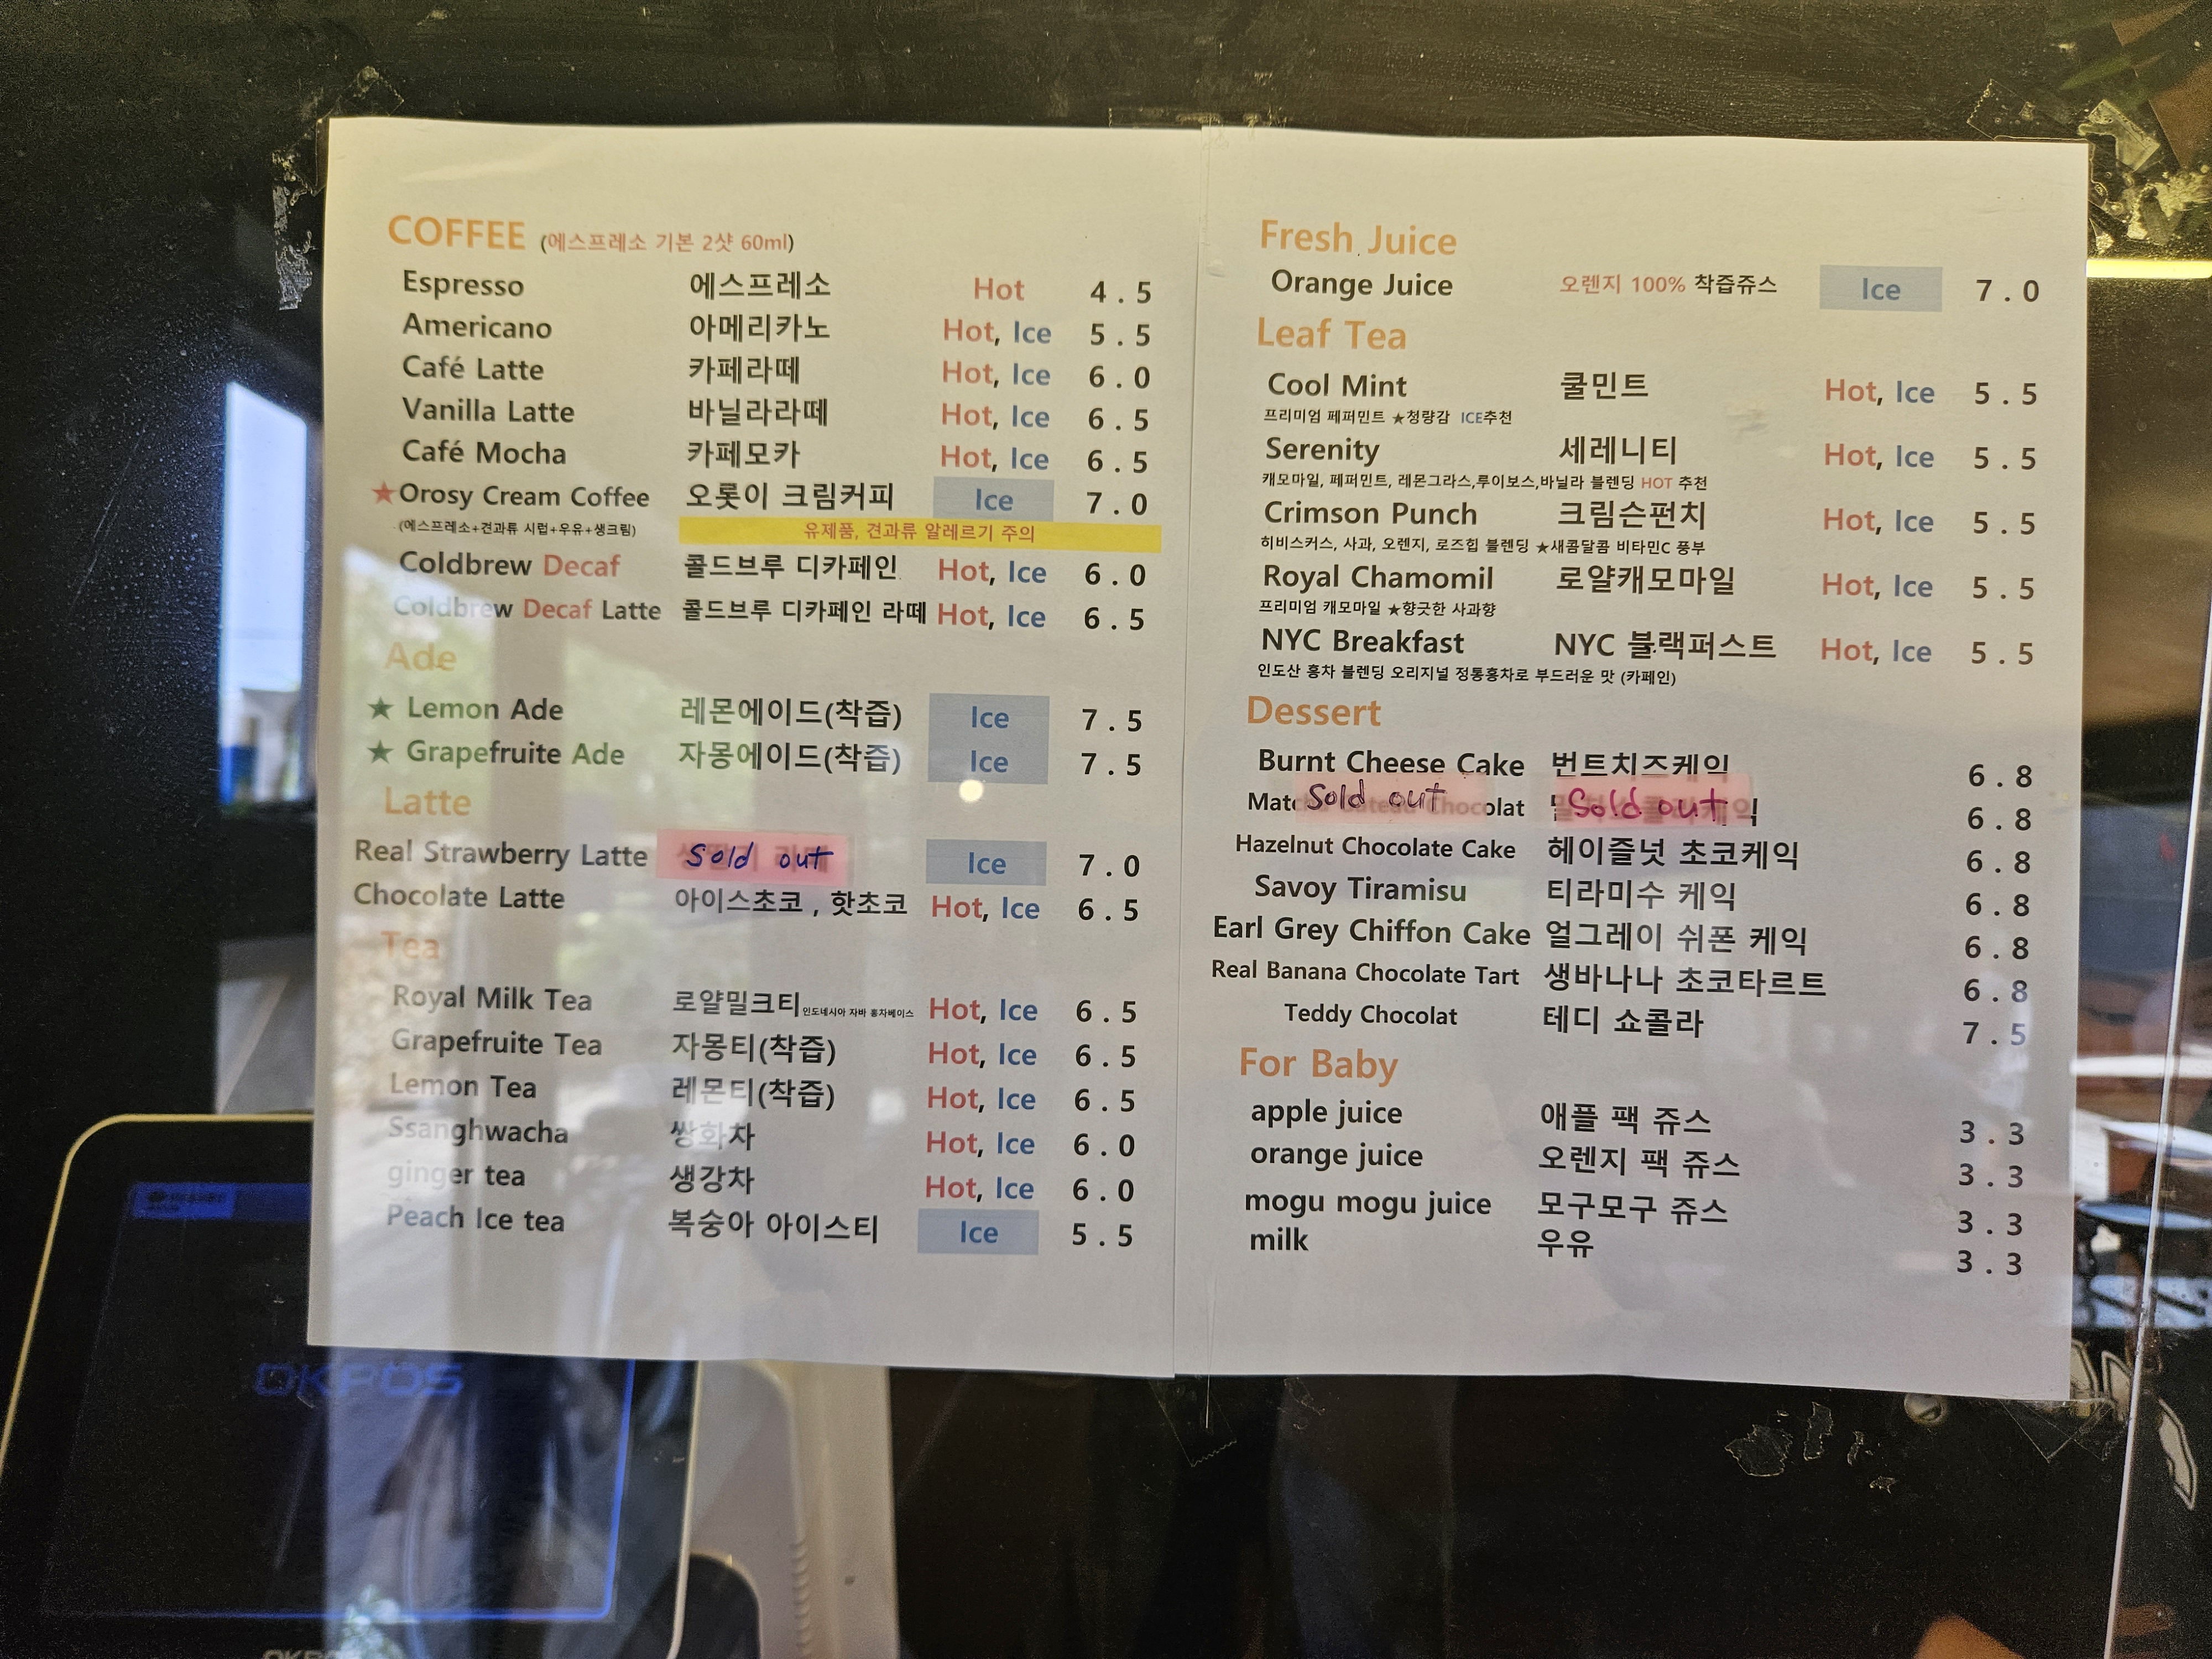 COFFEE (에스프레소 기본 2샷 60ml)
Espresso 에스프레소 Hot 4.5
Americano 아메리카노 Hot, Ice 5.5
Café Latte 카페라떼 Hot, Ice 6.0
Vanilla Latte 바닐라라떼 Hot, Ice 6.5
Café Mocha 카페모카 Hot, Ice 6.5
★Orosy Cream Coffee 오롯이 크림커피 Ice 7.0
(에스프레소+견과류 시럽+우유+생크림) 유제품, 견과류 알레르기 주의
Coldbrew Decaf 콜드브루 디카페인 Hot, Ice 6.0
Coldbrew Decaf Latte 콜드브루 디카페인 라떼 Hot, Ice 6.5
Ade
★ Lemon Ade 레몬에이드(착즙) Ice 7.5
★ Grapefruite Ade 자몽에이드(착즙) Ice 7.5
Latte
Real Strawberry Latte Sold out Ice 7.0
Chocolate Latte 아이스초코 , 핫초코 Hot, Ice 6.5
Tea
Royal Milk Tea 로얄밀크티 인도네시아 자바 홍차베이스 Hot, Ice 6.5
Grapefruite Tea 자몽티(착즙) Hot, Ice 6.5
Lemon Tea 레몬티(착즙) Hot, Ice 6.5
Ssanghwacha 쌍화차 Hot, Ice 6.0
ginger tea 생강차 Hot, Ice 6.0
Peach Ice tea 복숭아 아이스티 Ice 5.5
Fresh Juice
Orange Juice 오렌지 100% 착즙쥬스 Ice 7.0
Leaf Tea
Cool Mint 쿨민트 Hot, Ice 5.5
프리미엄 페퍼민트 ★청량감 ICE추천
Serenity 세레니티 Hot, Ice 5.5
캐모마일, 페퍼민트, 레몬그라스,루이보스,바닐라 블렌딩 HOT 추천
Crimson Punch 크림슨펀치 Hot, Ice 5.5
히비스커스, 사과, 오렌지, 로즈힙 블렌딩 ★새콤달콤 비타민C 풍부
Royal Chamomil 로얄캐모마일 Hot, Ice 5.5
프리미엄 캐모마일 ★향긋한 사과향
NYC Breakfast NYC 블랙퍼스트 Hot, Ice 5.5
인도산 홍차 블렌딩 오리지널 정통홍차로 부드러운 맛 (카페인)
Dessert
Burnt Cheese Cake 번트치즈케익 6.8
Sold out Sold out 6.8
Hazelnut Chocolate Cake 헤이즐넛 초코케익 6.8
Savoy Tiramisu 티라미수 케익 6.8
Earl Grey Chiffon Cake 얼그레이 쉬폰 케익 6.8
Real Banana Chocolate Tart 생바나나 초코타르트 6.8
Teddy Chocolat 테디 쇼콜라 7.5
For Baby
apple juice 애플 팩 쥬스 3.3
orange juice 오렌지 팩 쥬스 3.3
mogu mogu juice 모구모구 쥬스 3.3
milk 우유 3.3
OKPOS